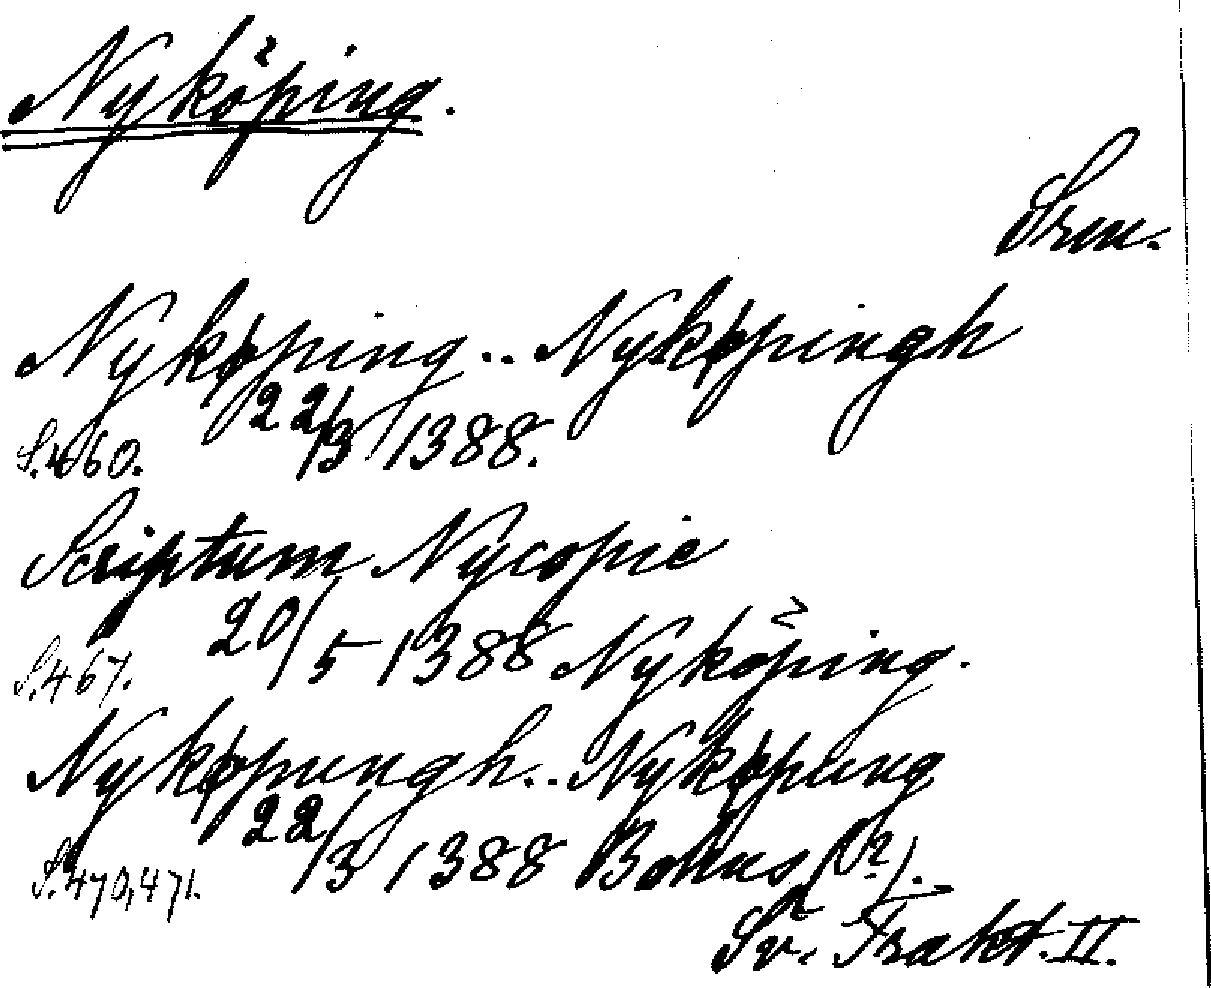 Nyköping.
Srm.
Nykøping .. Nykøpingh
S. 460. 22/3 1388.
Scriptum Nycopie
S. 467. 20/5 1388 Nyköping.
Nykøpungh .. Nykøpung
S. 470, 471. 22/3 1388 Bohus (?).
Sv. Trakt. II.